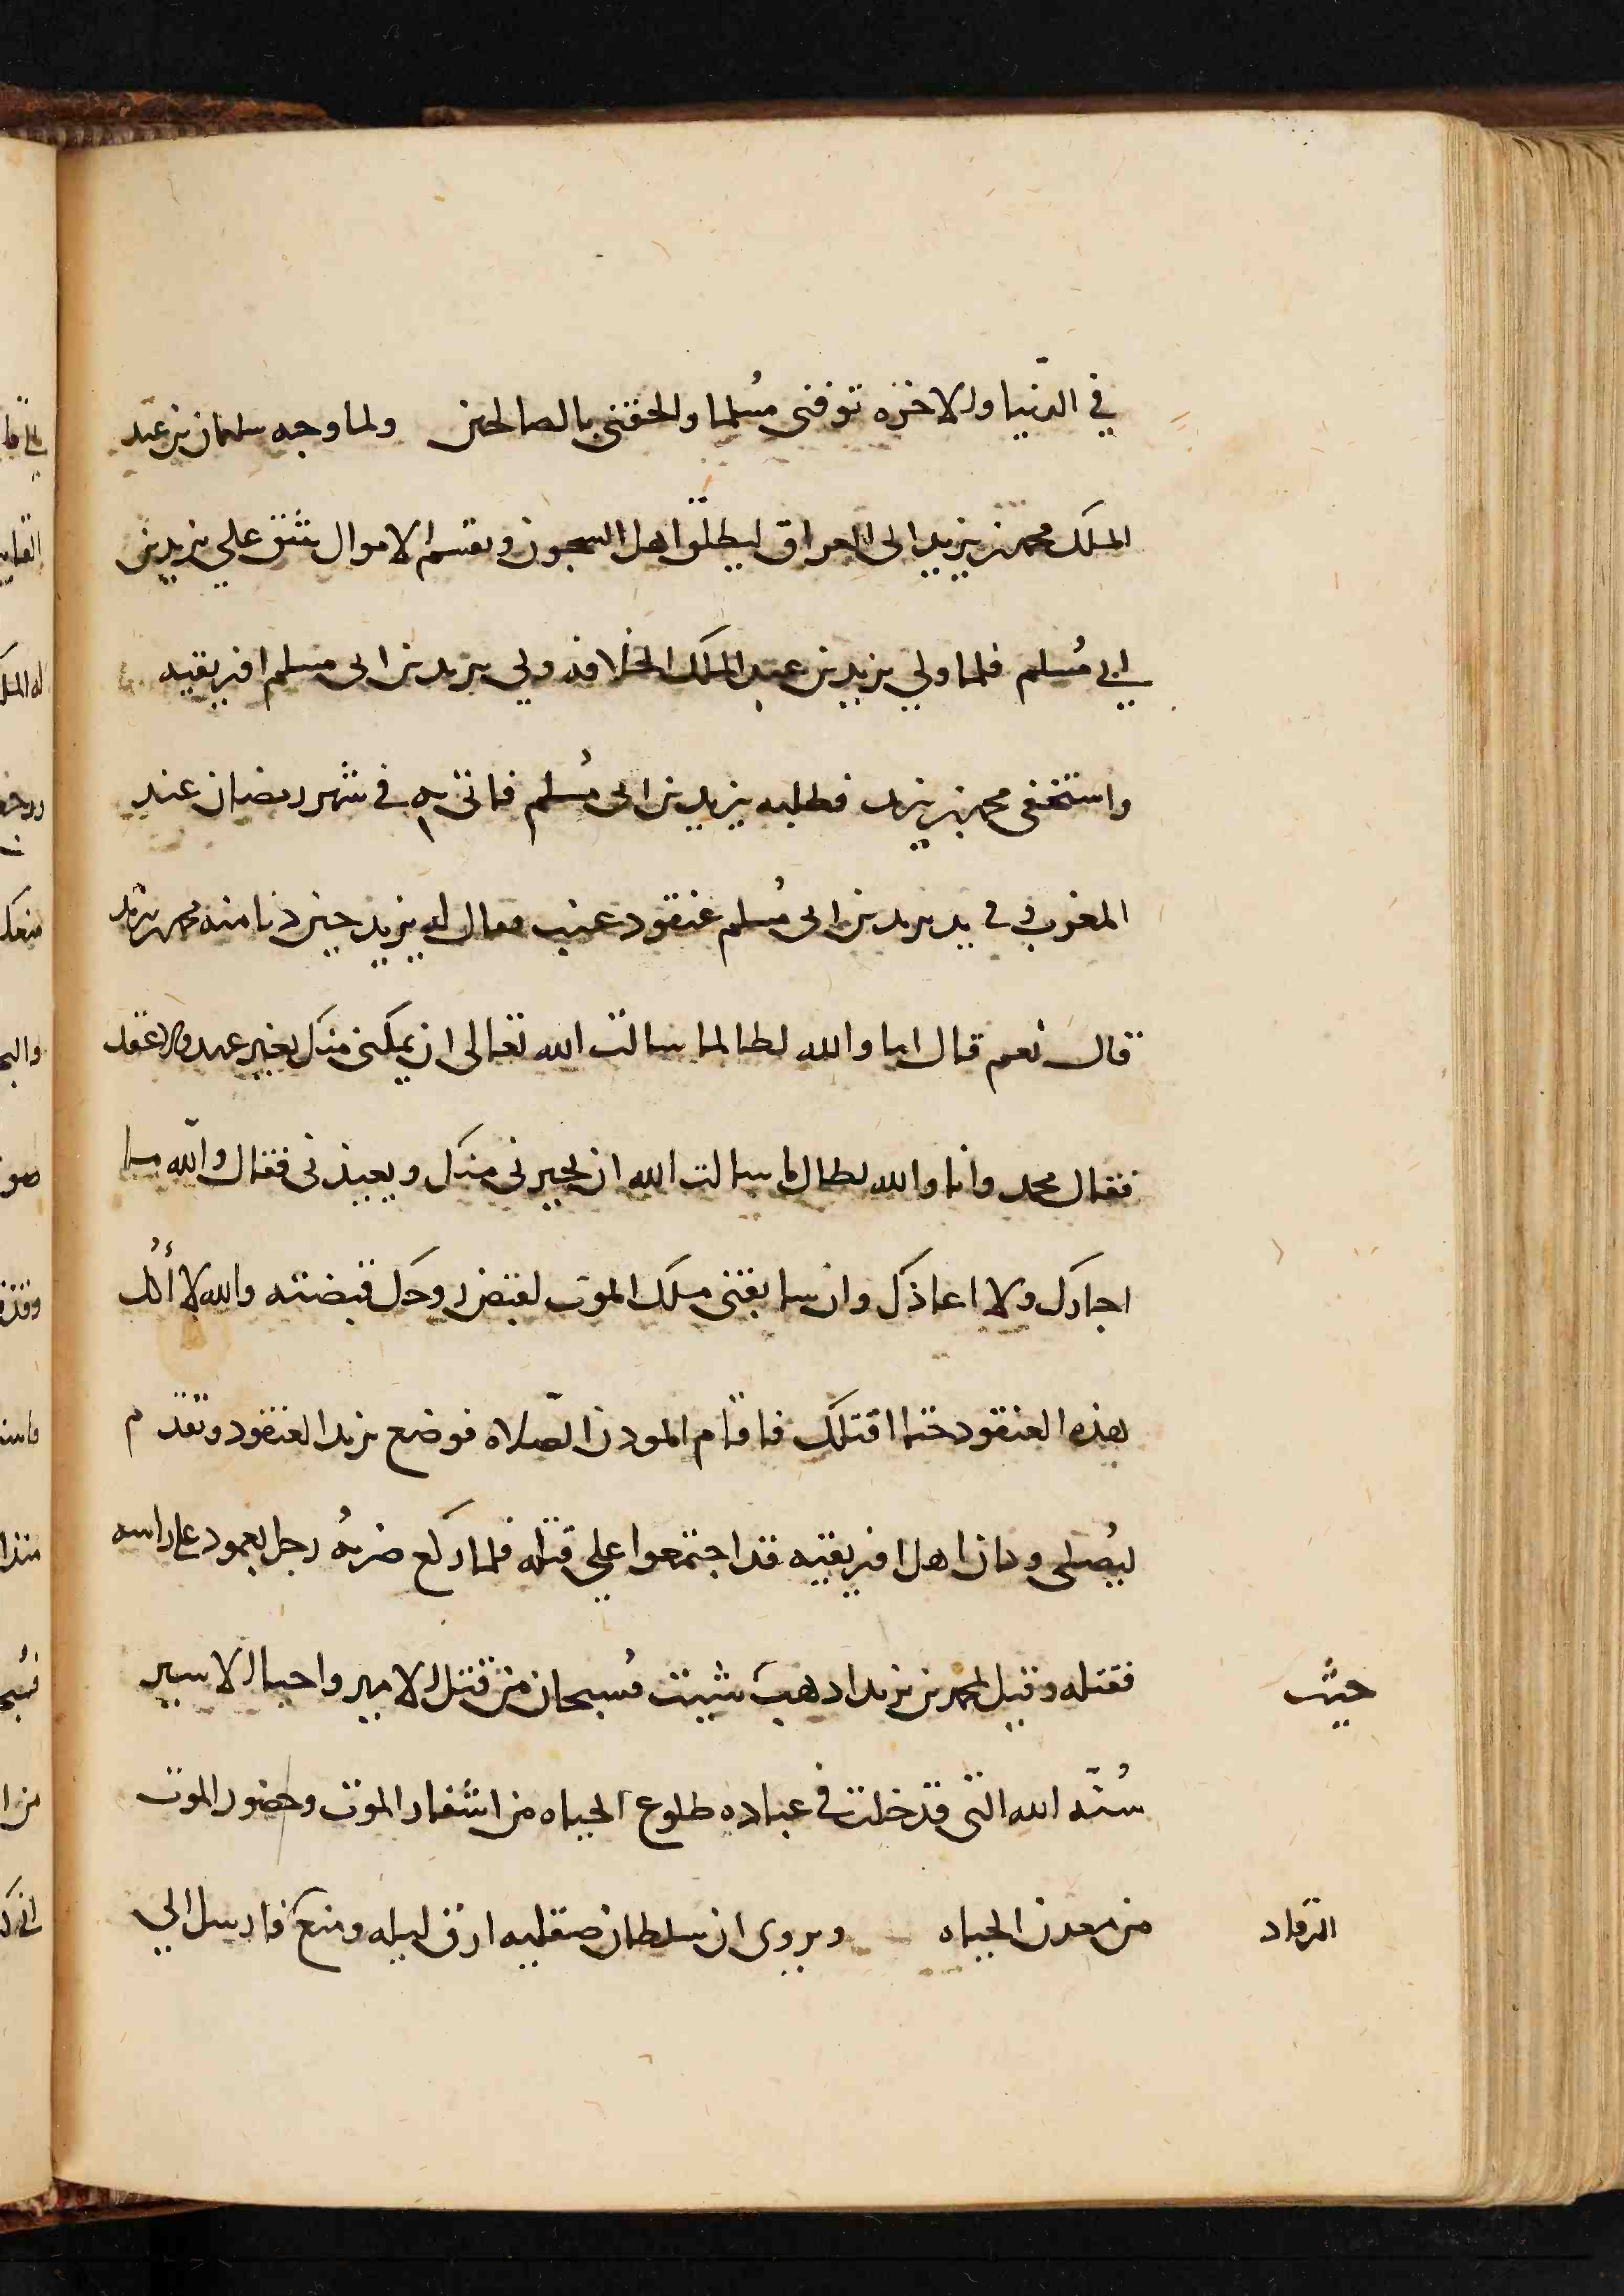 في الدّنيا والاخره توفنى مُسلما والحقنى بالصالحين ولما وجه سلمان بن عبد
الملك محمد بن يزيد الى العراق ليطلّق اهل السجون ويقسم الاموال شق علي يزيد بن
ابي مُسلم فلما ولي يزيد بن عبد الملك الخلافه ولي يزيد بن ابى مسلم افريقيه
واستخفى محمد بن يزيد فطلبه يزيد بن ابى مُسلم فاتى به في شهر رمضان عند
المغرب وفى يد يزيد بن ابى مُسلم عنقود عنب فقال له يزيد حين دنا منه محمد بن يزيد
قال نعم قال اما والله لطالما سالت الله تعالى ان يمكنى منك بغير عهد ولا عقد
فقال محمد وانا والله لطال ما سالت الله ان يجيرنى منك ويعيذنى فقال والله ما
اجارك ولا اعاذك وان سابقنى ملك الموت لقبض روحك قبضته والله لا أكل
هذه العنقود حتا اقتلك فاقام المودن الصّلاه فوضع يزيد العنقود وتقدم
ليُصلى وكان اهل افريقيه قد اجتمعوا علي قتله فلما ركع ضربهُ رجل بعمود على راسه
فقتله وقيل لمحمد بن يزيد ادهب شيت فسبحان من قتل الامير واحيا الاسير
حيث
سُنّه الله التى قد خلت في عباده طلوع الحياه من اشفار الموت وحضور الموت
من معدن الحياه ويروى ان سلطان صقليه ارق ليله ومنع فارسل الي
الرقاد